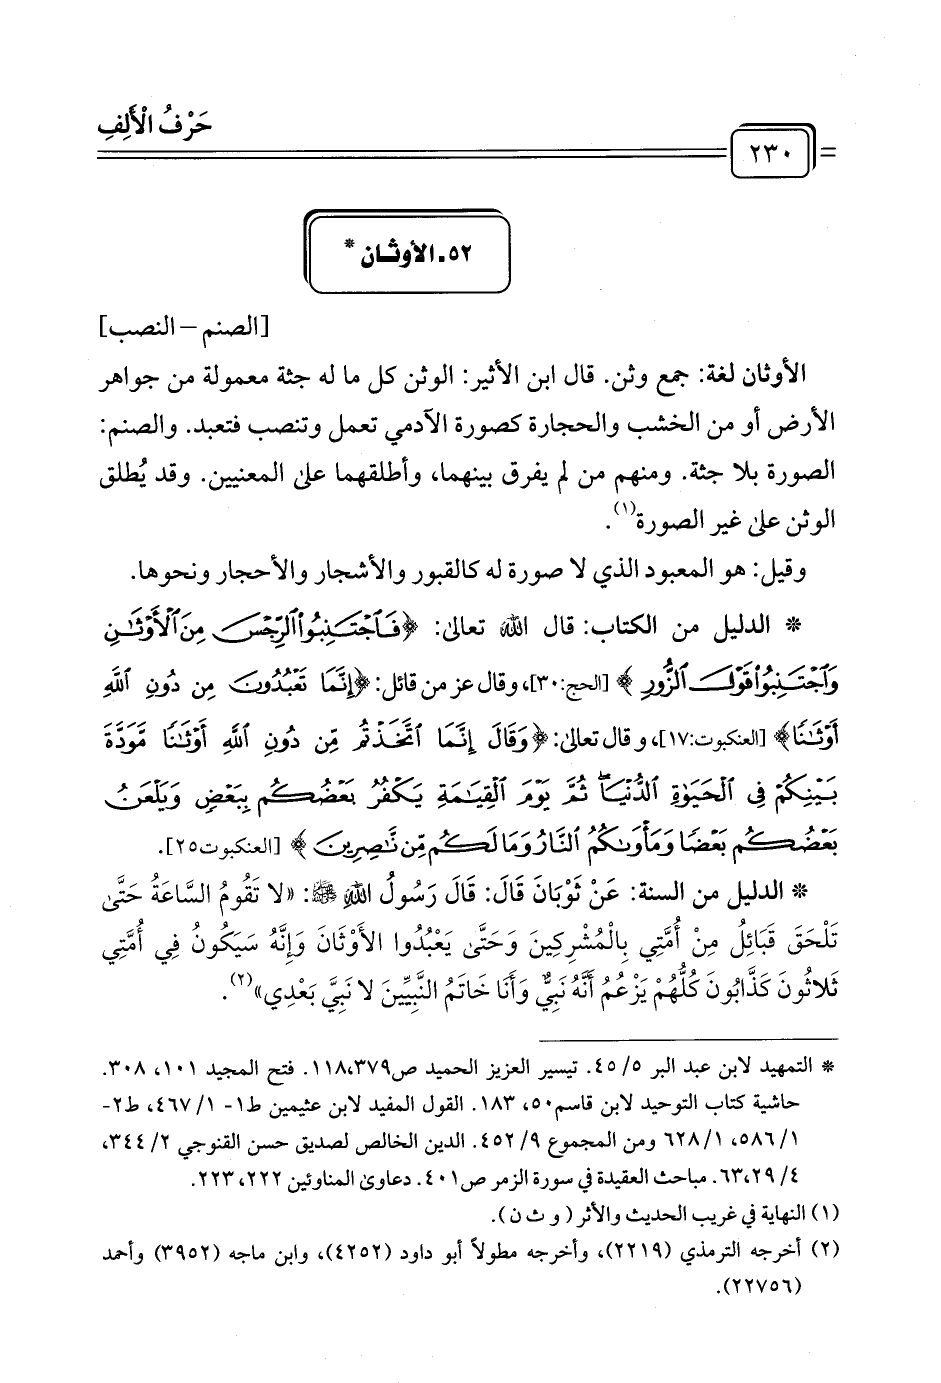 حَرْفُ الْأَلِفِ
٢٣٠
٥٢. الأوثان *
[الصنم – النصب]
الأوثان لغة: جمع وثن. قال ابن الأثير: الوثن كل ما له جثة معمولة من جواهر
الأرض أو من الخشب والحجارة كصورة الآدمي تعمل وتنصب فتعبد. والصنم:
الصورة بلا جثة. ومنهم من لم يفرق بينهما، وأطلقهما على المعنيين. وقد يُطلق
الوثن على غير الصورة(١).
وقيل: هو المعبود الذي لا صورة له كالقبور والأشجار والأحجار ونحوها.
* الدليل من الكتاب: قال الله تعالى: ﴿فَٱجْتَنِبُوا۟ ٱلرِّجْسَ مِنَ ٱلْأَوْثَٰنِ
وَٱجْتَنِبُوا۟ قَوْلَ ٱلزُّورِ﴾ [الحج: ٣٠]، وقال عز من قائل: ﴿إِنَّمَا تَعْبُدُونَ مِن دُونِ ٱللَّهِ
أَوْثَٰنًا﴾ [العنكبوت: ١٧]، وقال تعالى: ﴿وَقَالَ إِنَّمَا ٱتَّخَذْتُم مِّن دُونِ ٱللَّهِ أَوْثَٰنًا مَّوَدَّةَ
بَيْنِكُمْ فِى ٱلْحَيَوٰةِ ٱلدُّنْيَا ۖ ثُمَّ يَوْمَ ٱلْقِيَٰمَةِ يَكْفُرُ بَعْضُكُم بِبَعْضٍ وَيَلْعَنُ
بَعْضُكُم بَعْضًا وَمَأْوَىٰكُمُ ٱلنَّارُ وَمَا لَكُم مِّن نَّٰصِرِينَ﴾ [العنكبوت ٢٥].
* الدليل من السنة: عَنْ ثَوْبَانَ قَالَ: قَالَ رَسُولُ اللهِ ﷺ: «لا تَقُومُ السَّاعَةُ حَتَّى
تَلْحَقَ قَبَائِلُ مِنْ أُمَّتِي بِالْمُشْرِكِينَ وَحَتَّى يَعْبُدُوا الأَوْثَانَ وَإِنَّهُ سَيَكُونُ فِي أُمَّتِي
ثَلاثُونَ كَذَّابُونَ كُلُّهُمْ يَزْعُمُ أَنَّهُ نَبِيٌّ وَأَنَا خَاتَمُ النَّبِيِّينَ لا نَبِيَّ بَعْدِي»(٢).
* التمهيد لابن عبد البر ٥/ ٤٥. تيسير العزيز الحميد ص٣٧٩، ١١٨. فتح المجيد ١٠١، ٣٠٨.
حاشية كتاب التوحيد لابن قاسم ٥٠، ١٨٣. القول المفيد لابن عثيمين ط١- ١/ ٤٦٧، ط٢-
١/ ٥٨٦، ١/ ٦٢٨ ومن المجموع ٩/ ٤٥٢. الدين الخالص لصديق حسن القنوجي ٢/ ٣٤٤،
٤/ ٢٩، ٦٣. مباحث العقيدة في سورة الزمر ص٤٠١. دعاوى المناوئين ٢٢٢، ٢٢٣.
(١) النهاية في غريب الحديث والأثر (و ث ن).
(٢) أخرجه الترمذي (٢٢١٩)، وأخرجه مطولاً أبو داود (٤٢٥٢)، وابن ماجه (٣٩٥٢) وأحمد
(٢٢٧٥٦).